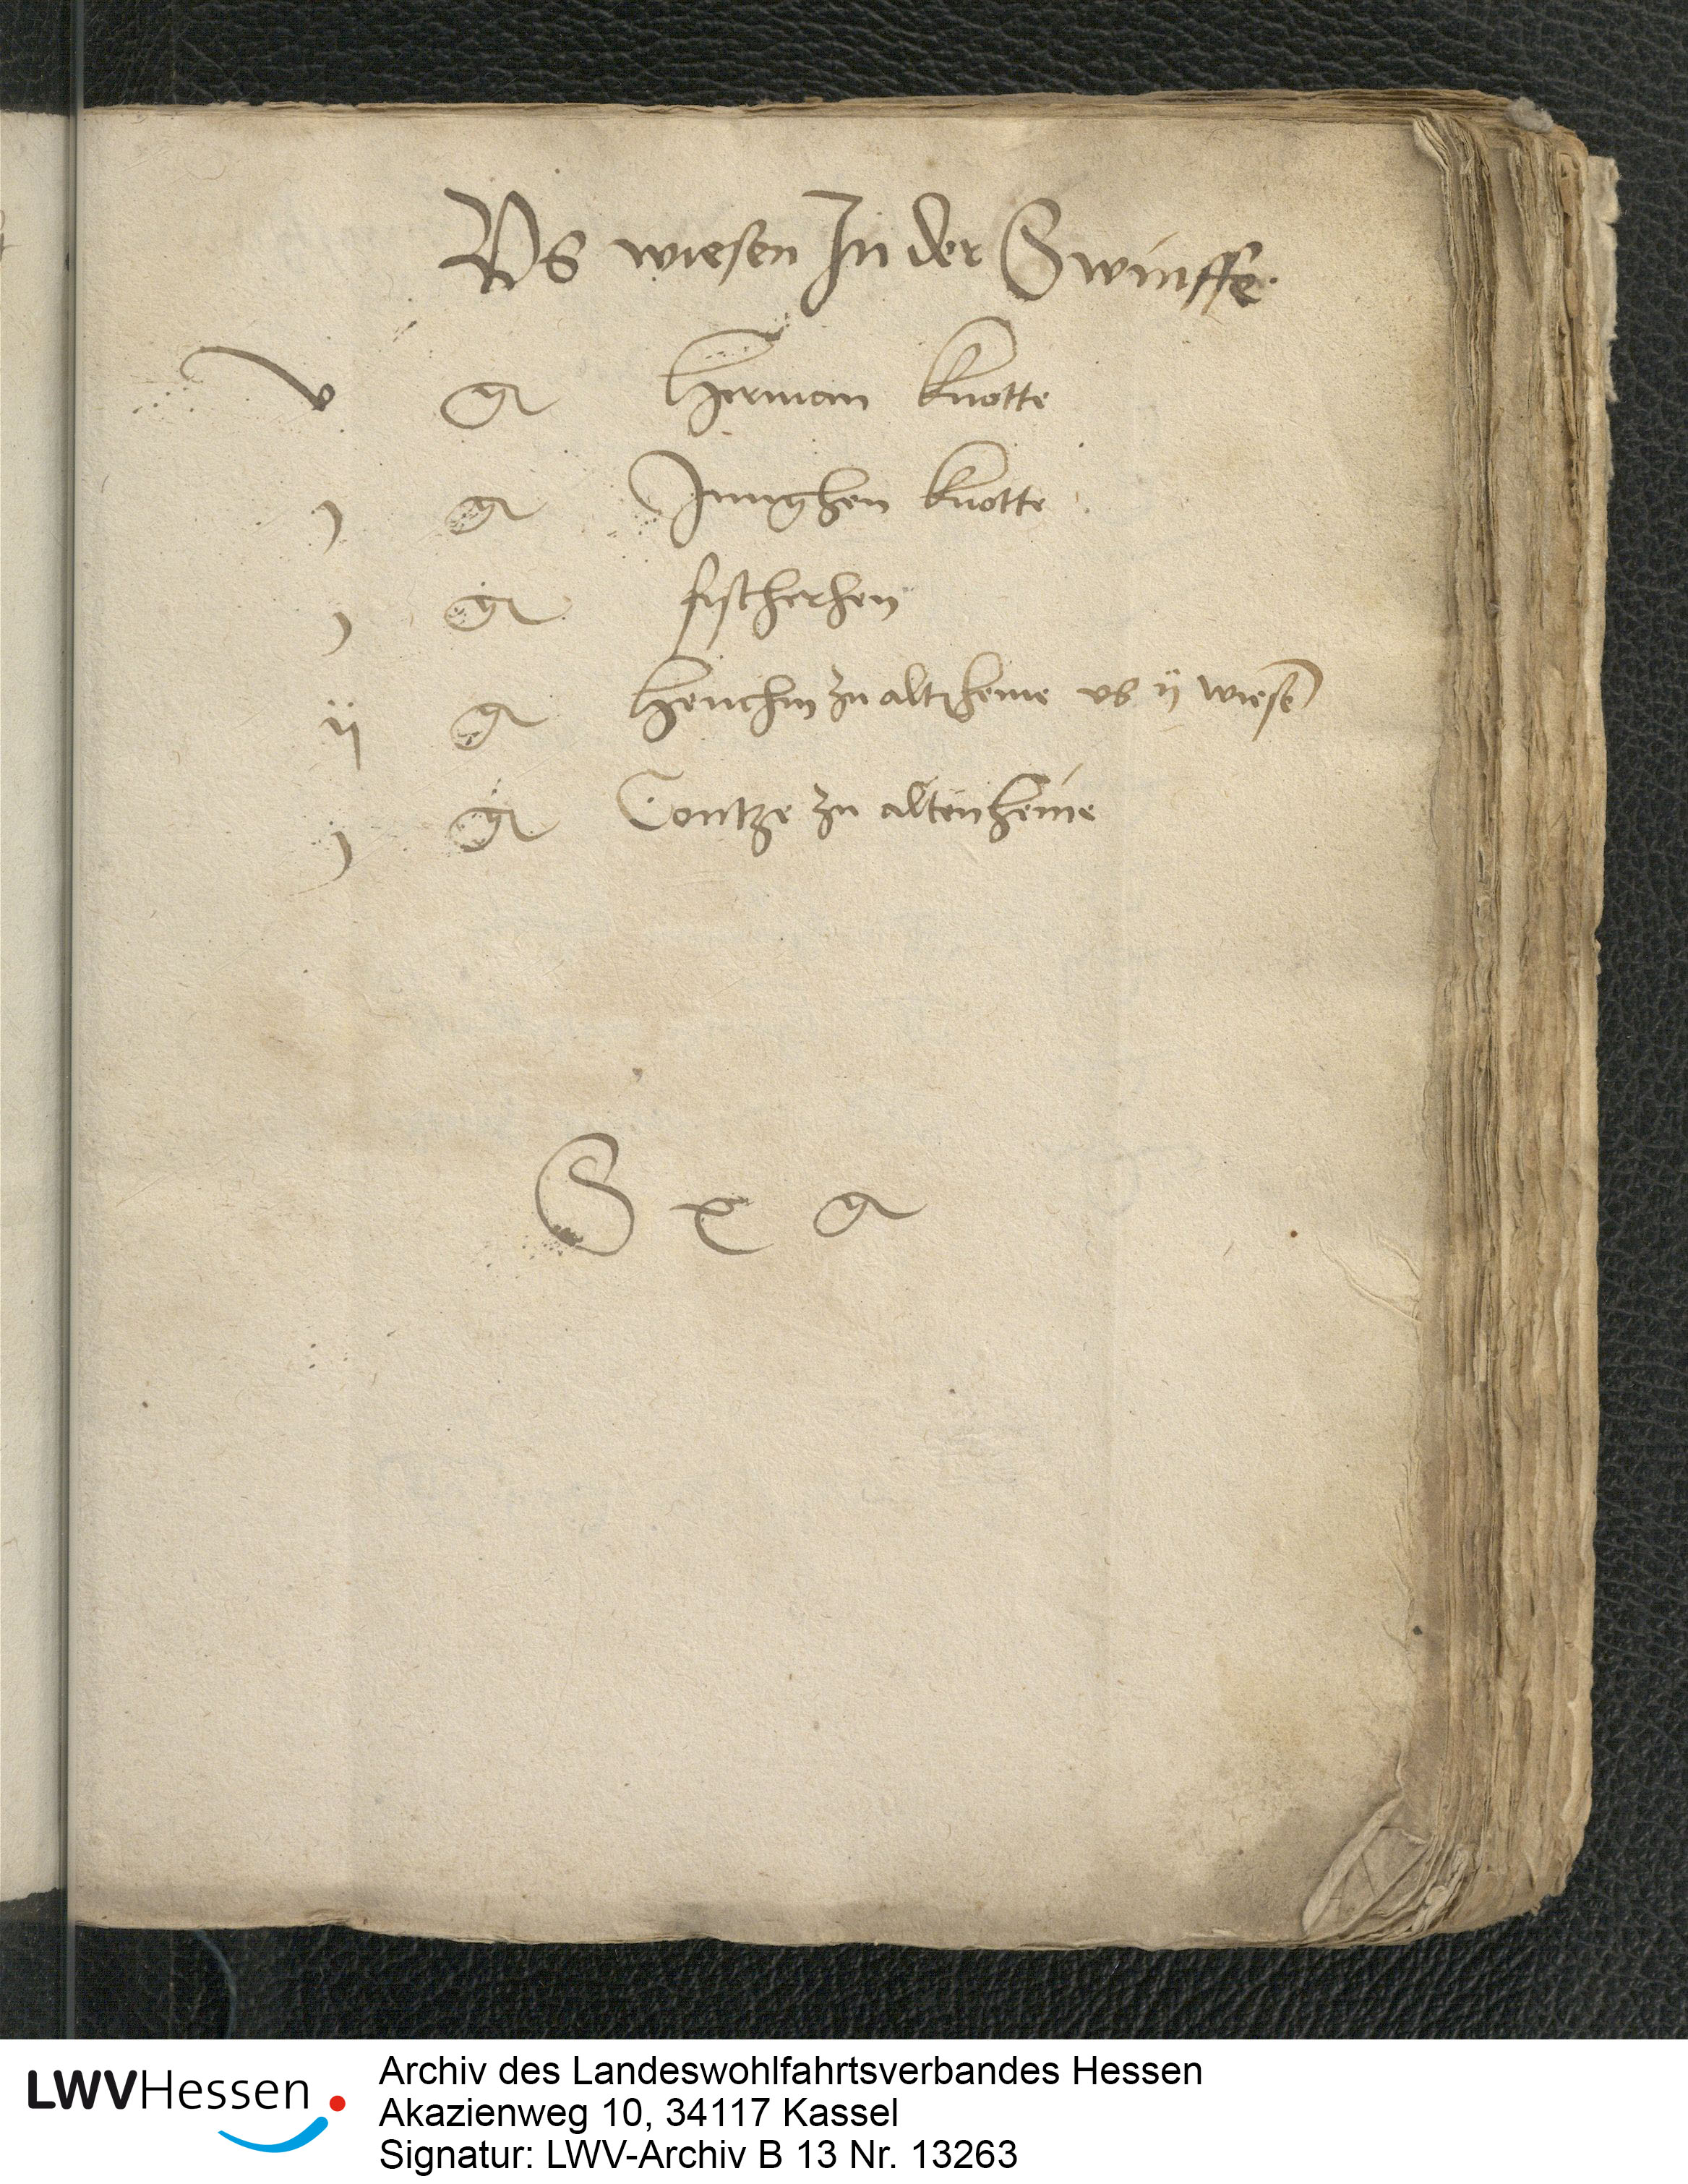 Vs wiesen In der Swinffe.
v g Herman knotte
j g Junghen knotte
j g fischerhen
ij g Henchin zu altzheime vs ij wiesen
j g Contze zu altenheime
S x g
LWVHessen
Archiv des Landeswohlfahrtsverbandes Hessen
Akazienweg 10, 34117 Kassel
Signatur: LWV-Archiv B 13 Nr. 13263